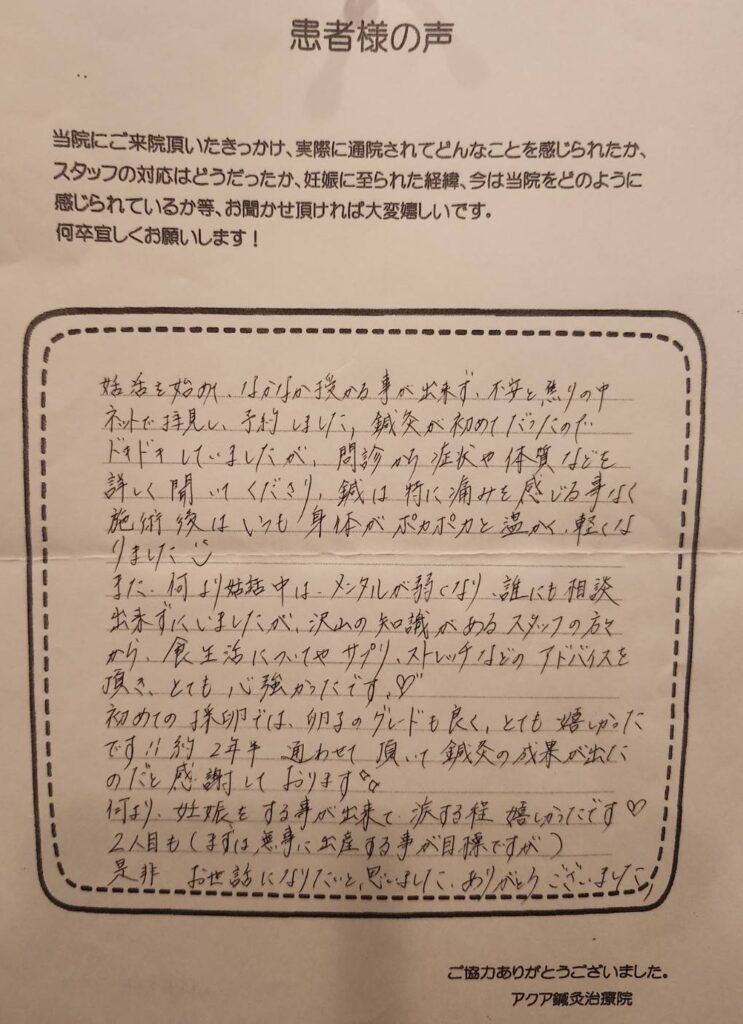 患者様の声
当院にご来院頂いたきっかけ、実際に通院されてどんなことを感じられたか、
スタッフの対応はどうだったか、妊娠に至られた経緯、今は当院をどのように
感じられているか等、お聞かせ頂ければ大変嬉しいです。
何卒宜しくお願いします！
妊活を始め、なかなか授かる事が出来ず、不安と焦りの中
ネットで拝見し、予約しました。鍼灸が初めてだったので
ドキドキしていましたが、問診から症状や体質などを
詳しく聞いてくださり、鍼は特に痛みを感じる事なく
施術後はいつも身体がポカポカと温かく、軽くな
りました
また、何より妊活中は、メンタルが弱くなり、誰にも相談
出来ずにいましたが、沢山の知識があるスタッフの方々
から、食生活についてやサプリ、ストレッチなどのアドバイスを
頂き、とても心強かったです。♡
初めての採卵では、卵子のグレードも良く、とても嬉しかった
です!! 約2年半通わせて頂いて鍼灸の成果が出た
のだと感謝しております
何より、妊娠をする事が出来て涙する程嬉しかったです♡
2人目も(まずは無事に出産する事が目標ですが)
是非 お世話になりたいと思いました。ありがとうございました。
ご協力ありがとうございました。
アクア鍼灸治療院